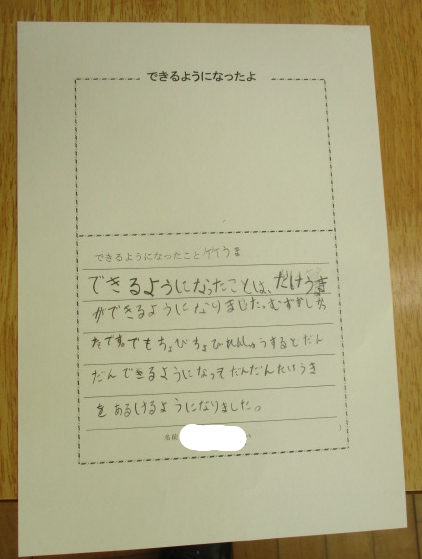 できるようになったよ
できるようになったこと 竹うま
できるようになったことは、たけうま
ができるようになりました。むずかしかっ
たです。でもちょびちょびれんしゅうするとだん
だんできるようになってだんだんたけうま
をあるけるようになりました。
名前